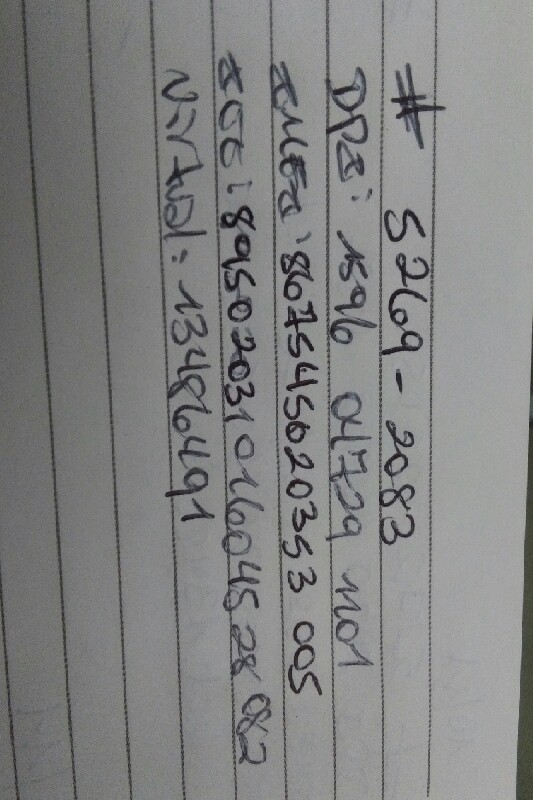 # 5269-2083
DPI: 1596 04729 1101
IMEI: 867545020353005
ICC: 8950203101604528082
Virtual: 13486491